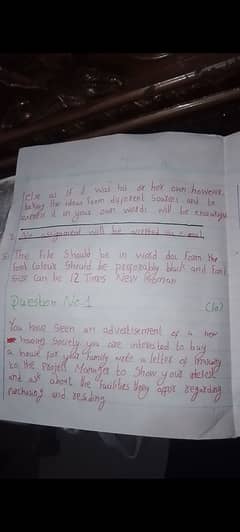 else as if it was his or her own however,
taking the ideas from different Sources and to
write it in your own words will be encourage
No assignment will be
5) The File Should be in word doc form the
font colour should be preperably black and font
size can be 12 Times New Roman
Question No 1 (10)
You have seen an advertisement of a new
housing Society you are intersted to buy
a house for your family write a letter of inquiry
to the Project Manager to Show your interest
and ask about the facilities they offer regarding
purchasing and residing